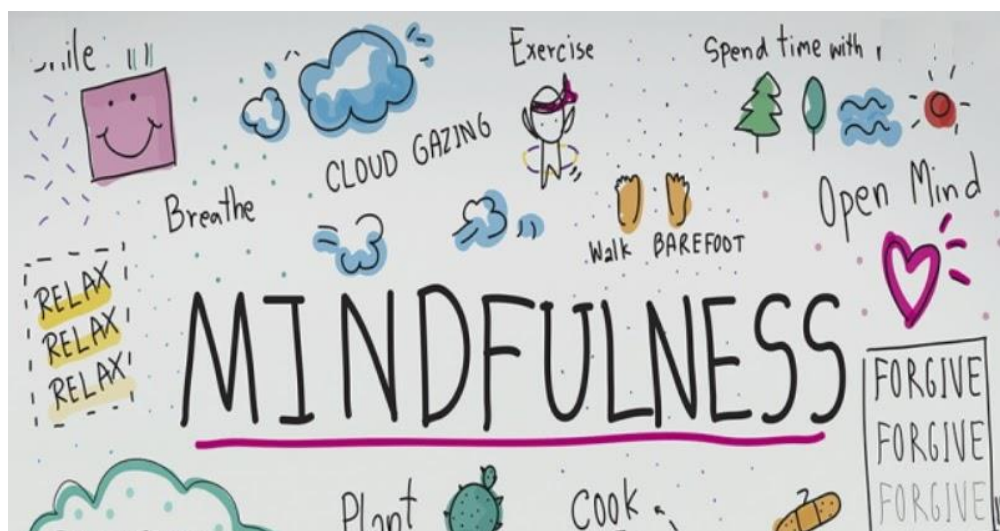 Exercise
Spend time with
CLOUD GAZING
Breathe
Open Mind
Walk BAREFOOT
RELAX
RELAX
RELAX
MINDFULNESS
FORGIVE
FORGIVE
FORGIVE
Plant
Cook